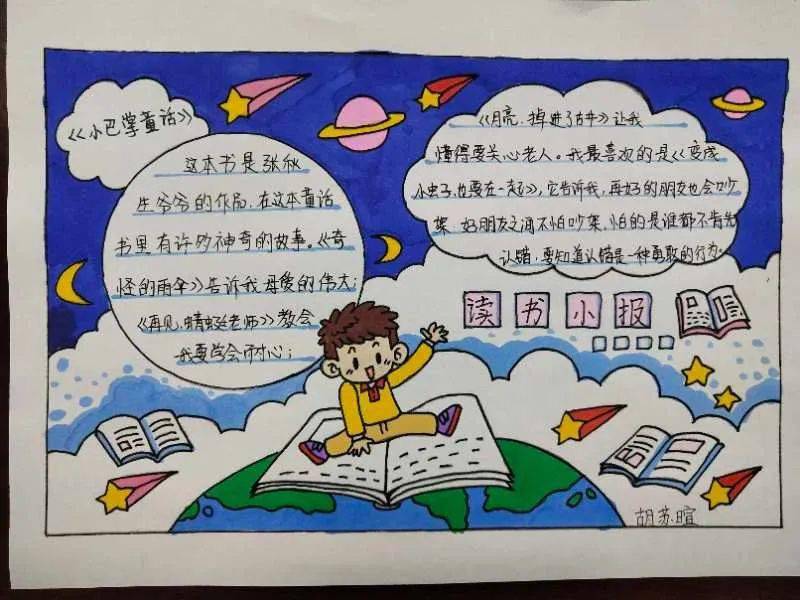 《小巴掌童话》
这本书是张秋
生爷爷的作品,在这本童话
书里有许多神奇的故事。《奇
怪的雨伞》告诉我母爱的伟大;
《再见,蜻蜓老师》教会
我要学会耐心;
《月亮,掉进了古井》让我
懂得要关心老人。我最喜欢的是《变成
小虫子,也要在一起》,它告诉我,再好的朋友也会吵
架,好朋友之间不怕吵架,怕的是谁都不肯先
认错,要知道认错是一种勇敢的行为。
读书小报
胡苏暄